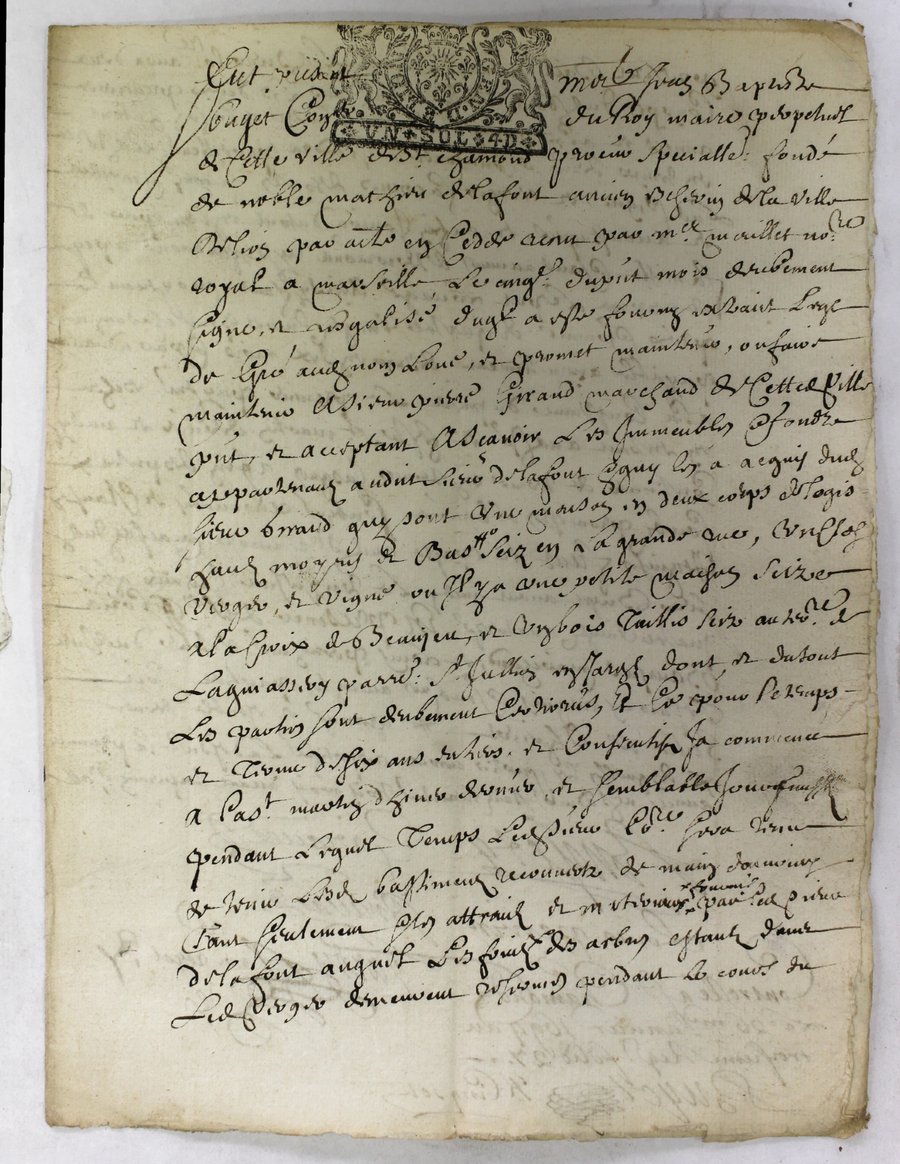 Fut présent Mre Jean Baptiste
GEN D
UN · SOL · 4D
Bouget Coner du Roy maire perpetuel
de Cette ville de St chamond procur specialle: fondé
de noble mathieu delafont ancien Echevin de la ville
de lion par acte en Cedde receu par me maillet nore
royal a marseille Le cinqe du pnt mois deubement
signé, et legalisé duql a esté fourny extraict Leql
de Gré audt nom Loue, et promet maintenir, ou faire
maintenir A sieur pierre Girard marchand de Cetted ville
pnt, et acceptant Ascavoir Les Immeubles Et fondz
appartenant audit sieur delafont quy les a acquis dud
sieur Girard quy sont une maison en deux corps de logis
haut moyen et bas size en La grande rue,
verger, et vigne ou Il y a une petite maison size
a la Croix de Beaujeu, et un bois Taillis size au terre de
parre: St Jullien en Jarest dont, et du tout
Les parties sont deubement Certiorées, Et Ce pour le temps
et Terme de six ans entiers, et Consecutifs Ja commencé
a La st martin d'hiver dernier, et semblable Jour
pendant Lequel Temps Led sieur sera tenu
de tenir Lesd bastimens recouvertz de main
tant seulement et materiaux fournis par led sieur
delafont auquel Les des arbres estant dans
Led verger demeurent reservés pendant Le cours du